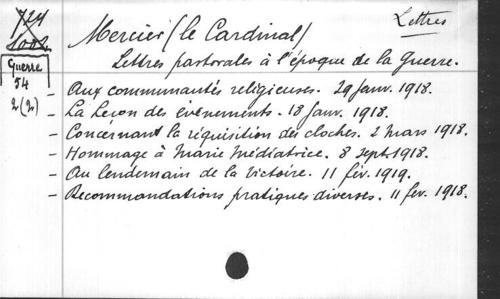 724
1002
Lettres
Mercier (le Cardinal)
Guerre
54
2(2)
Lettres pastorales à l'époque de la Guerre.
- Aux communautés religieuses. 29 janv. 1918.
- La Leçon des évènements. 18 janv. 1918.
- Concernant la réquisition des cloches. 2 mars 1918.
- Hommage à Marie Médiatrice. 8 sept. 1918.
- Au lendemain de la Victoire. 11 fév. 1919.
- Recommandations pratiques diverses. 11 fév. 1918.